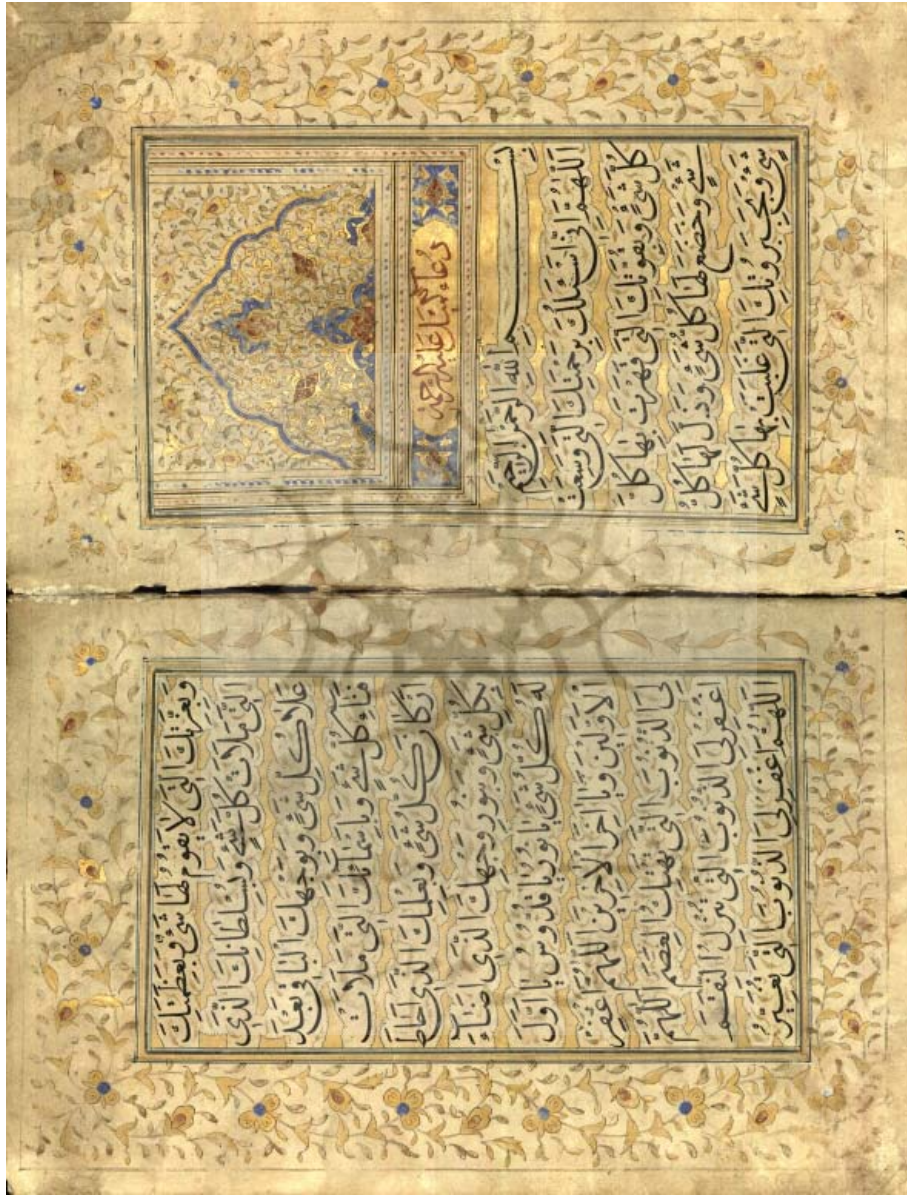 دعاء كميل عليه الرحمة
بِسْمِ اللهِ الرَّحْمٰنِ الرَّحِيمِ
اَللّٰهُمَّ اِنّى اَسْئَلُكَ بِرَحْمَتِكَ الَّتى وَسِعَتْ
كُلَّ شَىْءٍ وَبِقُوَّتِكَ الَّتى قَهَرْتَ بِها كُلَّ
شَىْءٍ وَخَضَعَ لَها كُلُّ شَىْءٍ وَذَلَّ لَها كُلُّ
شَىْءٍ وَبِجَبَرُوتِكَ الَّتى غَلَبْتَ بِها كُلَّ شَىْءٍ
وَبِعِزَّتِكَ الَّتى لا يَقُومُ لَها شَىْءٌ وَبِعَظَمَتِكَ
الَّتى مَلَاَتْ كُلَّ شَىْءٍ وَبِسُلْطانِكَ الَّذى
عَلا كُلَّ شَىْءٍ وَبِوَجْهِكَ الْباقى بَعْدَ
فَناءِ كُلِّ شَىْءٍ وَبِاَسْمآئِكَ الَّتى مَلَاَتْ
اَرْكانَ كُلِّ شَىْءٍ وَبِعِلْمِكَ الَّذى اَحاطَ
بِكُلِّ شَىْءٍ وَبِنُورِ وَجْهِكَ الَّذى اَضآءَ
لَهُ كُلُّ شَىْءٍ يا نُورُ يا قُدُّوسُ يا اَوَّلَ
الْاَوَّلينَ وَيا اٰخِرَ الْاٰخِرينَ اَللّٰهُمَّ اغْفِرْ
لِىَ الذُّنُوبَ الَّتى تَهْتِكُ الْعِصَمَ اَللّٰهُمَّ
اغْفِرْ لِىَ الذُّنُوبَ الَّتى تُنْزِلُ النِّقَمَ
اَللّٰهُمَّ اغْفِرْ لِىَ الذُّنُوبَ الَّتى تُغَيِّرُ